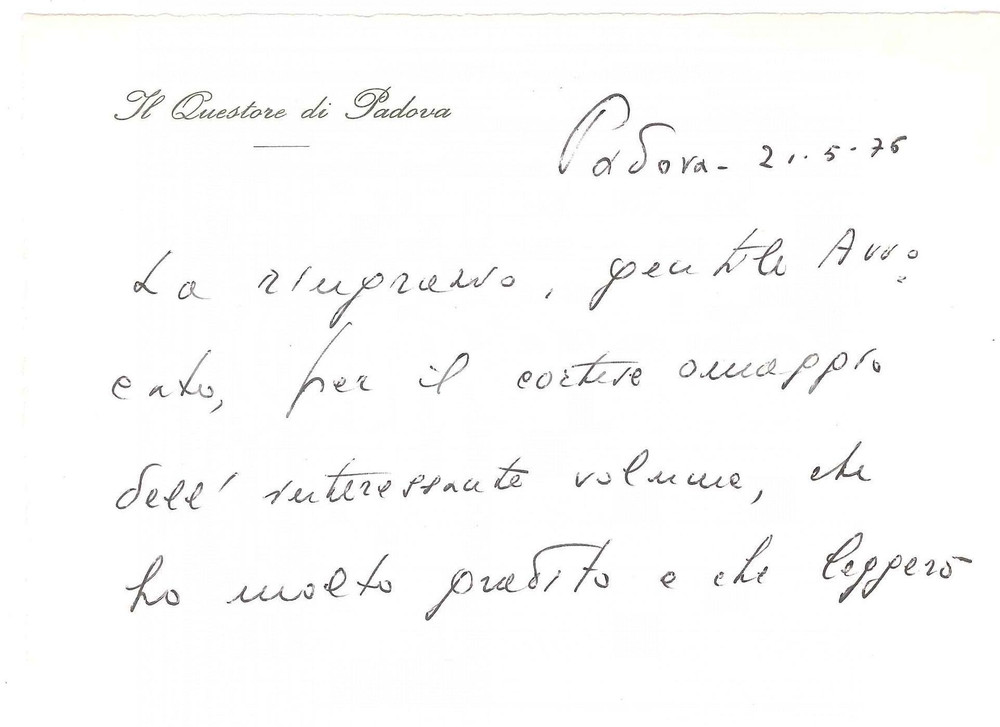 Il Questore di Padova
Padova - 21.5.76
La ringrazio, gentile Avvo
cato, per il cortese omaggio
dell'interessante volume, che
ho molto gradito e che leggerò